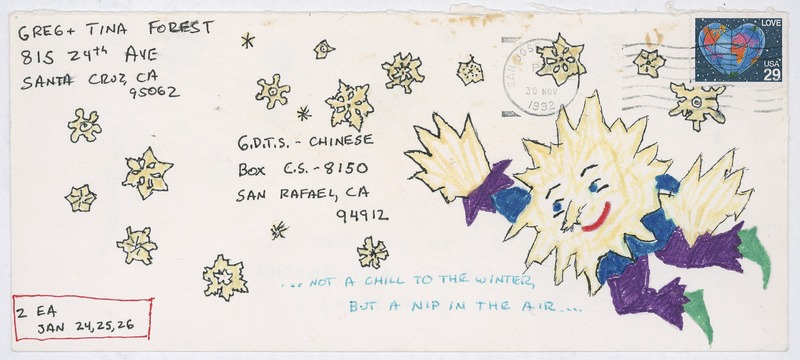 GREG + TINA FOREST
815 24th AVE
SANTA CRUZ, CA
95062
SAN JOSE
P
30 NOV
1992
LOVE
USA
29
G.D.T.S. - CHINESE
BOX C.S. - 8150
SAN RAFAEL, CA
94912
...NOT A CHILL TO THE WINTER,
BUT A NIP IN THE AIR....
2 EA
JAN 24,25,26